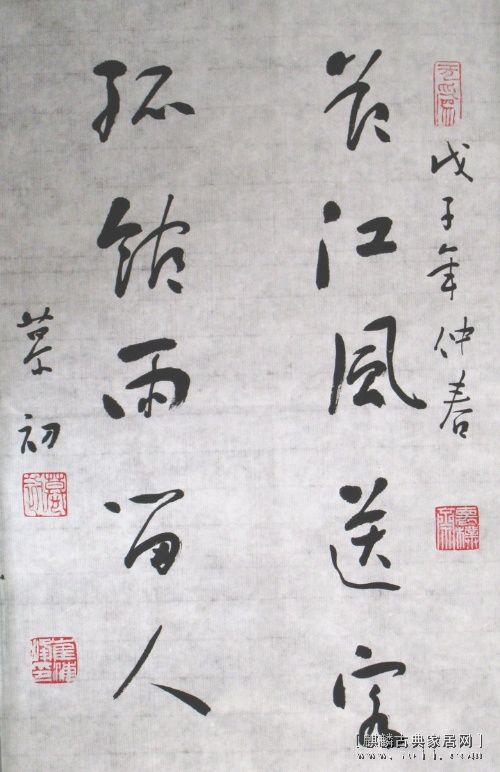 戊子年仲春
長江風送客
孤館雨留人
慕初
[麒麟古典家居网]